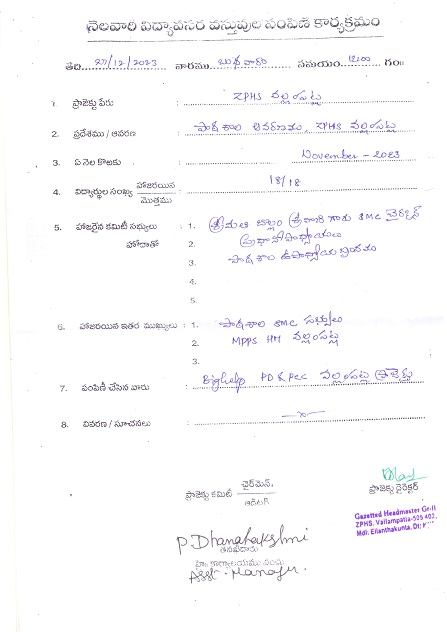 నెలవారి విద్యావసర వస్తువుల పంపిణీ కార్యక్రమం
తేది. 27/12/2023 వారము బుధవారం సమయం. 12:00 గం॥
1. ప్రాజెక్టు పేరు : ZPHS వల్లంపట్ల
2. ప్రదేశము / ఆవరణ : పాఠశాల ఆవరణము, ZPHS వల్లంపట్ల
3. ఏ నెల కొఱకు : November - 2023
4. విద్యార్థుల సంఖ్య హాజరయిన / మొత్తము : 18/18
5. హాజరైన కమిటీ సభ్యులు : 1. శ్రీమతి శ్రీవారి గారు SMC చైర్మన్
హోదాతో 2. ప్రధానోపాధ్యాయులు
3. పాఠశాల ఉపాధ్యాయ బృందము
4.
5.
6. హాజరయిన ఇతర ముఖ్యులు : 1. పాఠశాల SMC సభ్యులు
2. MPPS HM వల్లంపట్ల
3.
7. పంపిణీ చేసిన వారు : Bighelp PD & PCC వల్లంపట్ల ప్రాజెక్టు
8. వివరణ / సూచనలు :
ప్రాజెక్టు కమిటీ ఛైర్మెన్, / ఆడిటర్
ప్రాజెక్టు డైరెక్టర్
Gazetted Headmaster Gr-II
ZPHS. Vallampatla-505 402.
Mdl: Ellanthakunta. Dt:
P. Dhanalakshmi
తనిఖీదారు
హె౹౹ కార్యాలయము నుండి
Asst. Manager.